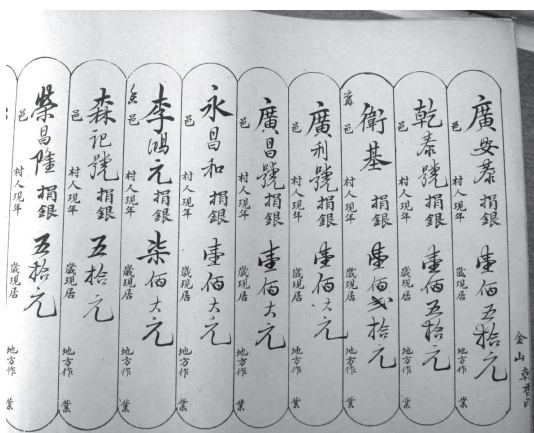 金山
廣安泰 捐銀 壹佰五拾元
邑 村人現年 歲現居 地方作 業
乾泰號 捐銀 壹佰五拾元
邑 村人現年 歲現居 地方作 業
衛基 捐銀 壹佰弍拾元
邑 村人現年 歲現居 地方作 業
廣利號 捐銀 壹佰大元
邑 村人現年 歲現居 地方作 業
廣昌號 捐銀 壹佰大元
邑 村人現年 歲現居 地方作 業
永昌和 捐銀 壹佰大元
邑 村人現年 歲現居 地方作 業
李鴻元 捐銀 柒佰大元
邑 村人現年 歲現居 地方作 業
森記號 捐銀 五拾元
邑 村人現年 歲現居 地方作 業
榮昌隆 捐銀 五拾元
邑 村人現年 歲現居 地方作 業